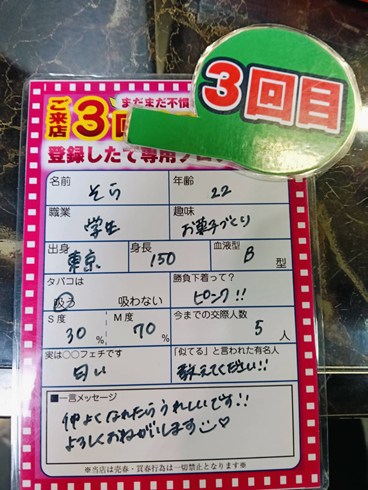 3回目
ご来店3回
まだまだ不慣
登録したて専用プロ
名前 そら 年齢 22
職業 学生 趣味 お菓子づくり
出身 東京 身長 150 血液型 B 型
タバコは 吸う 吸わない 勝負下着って? ピンク!!
S度 30% M度 70% 今までの交際人数 5人
実は○○フェチです 匂い 「似てる」と言われた有名人 教えてください!!
■一言メッセージ
仲よくなれたらうれしいです!!
よろしくおねがいします♡
※当店は売春・買春行為は一切禁止となります※